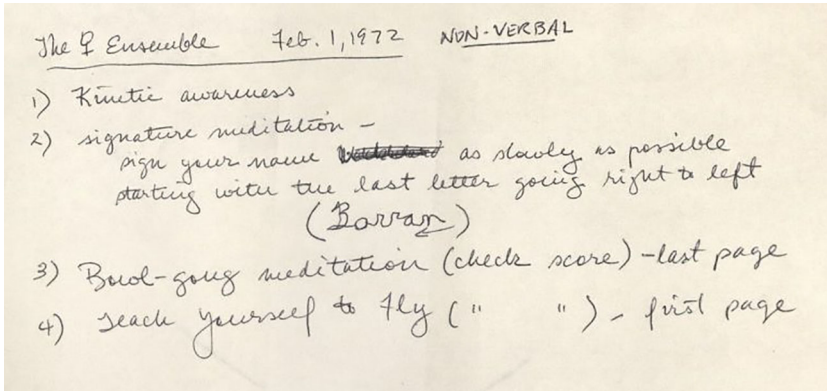 The ♀ Ensemble Feb. 1, 1972 NON-VERBAL
1) Kinetic awareness
2) signature meditation –
sign your name as slowly as possible
starting with the last letter going right to left
(Barran)
3) Bowl-gong meditation (check score) – last page
4) Teach yourself to fly ( " " ) – first page